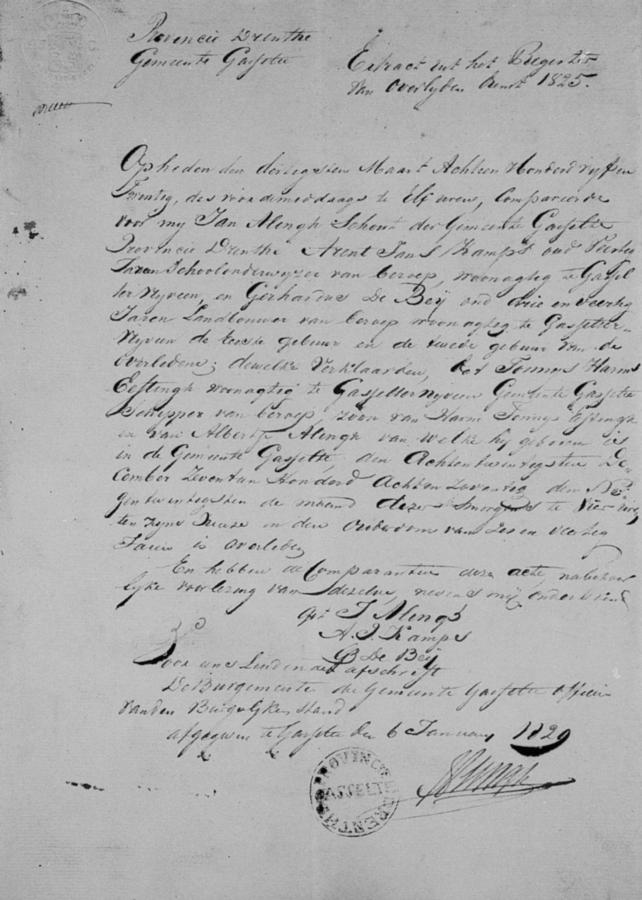 Provincie Drenthe
Gemeente Gasselte
Extract uit het Register
van Overlyden Anno 1825.
Op heden den dertigsten Maart Achtien Honderd vyf en
Twintig, des voordemiddaags te Elf uren, Compareerde
voor my Jan Alingh Schout der Gemeente Gasselte
Provincie Drenthe Arent Jans Kamps oud
Jaren Schoolonderwyzer van beroep, woonagtig te Gassel
ternyveen, en Gerhardus De Beÿ oud drie en veertig
Jaren Landbouwer van beroep woonagtig te Gasselter
Nyveen de eerste gebuur en de tweede gebuur van de
Overledene; dewelke Verklaarden, dat Tonnis Harms
Eeftingh woonagtig te Gasselternyveen Gemeente Gasselte
Schipper van beroep, zoon van Harm Tonnys Eeftingh
en van Albertje Alingh van welke hij geboren is
in de Gemeente Gasselte, den Achtentwintigsten De
Cember Zeventien Honderd Achtenzeventig den Ne
gentwintigsten de maand dezer Smorgens te Vier uren
ten zyne huize in den Ouderdom van Zes en Veertig
Jaren is overleden
En hebben de Comparanten deze acte na behoor
lyke voorlezing van dezelve, nevens mij onderteekend
Get J Alingh
A. J. Kamps
G De Beÿ
Voor afschrift
De Burgemeester der Gemeente Gasselte officier
van den Burgelyken stand
afgegeven te Gasselte den 6 January 1829
PROVINCIE DRENTHE
GASSELTE
Alingh